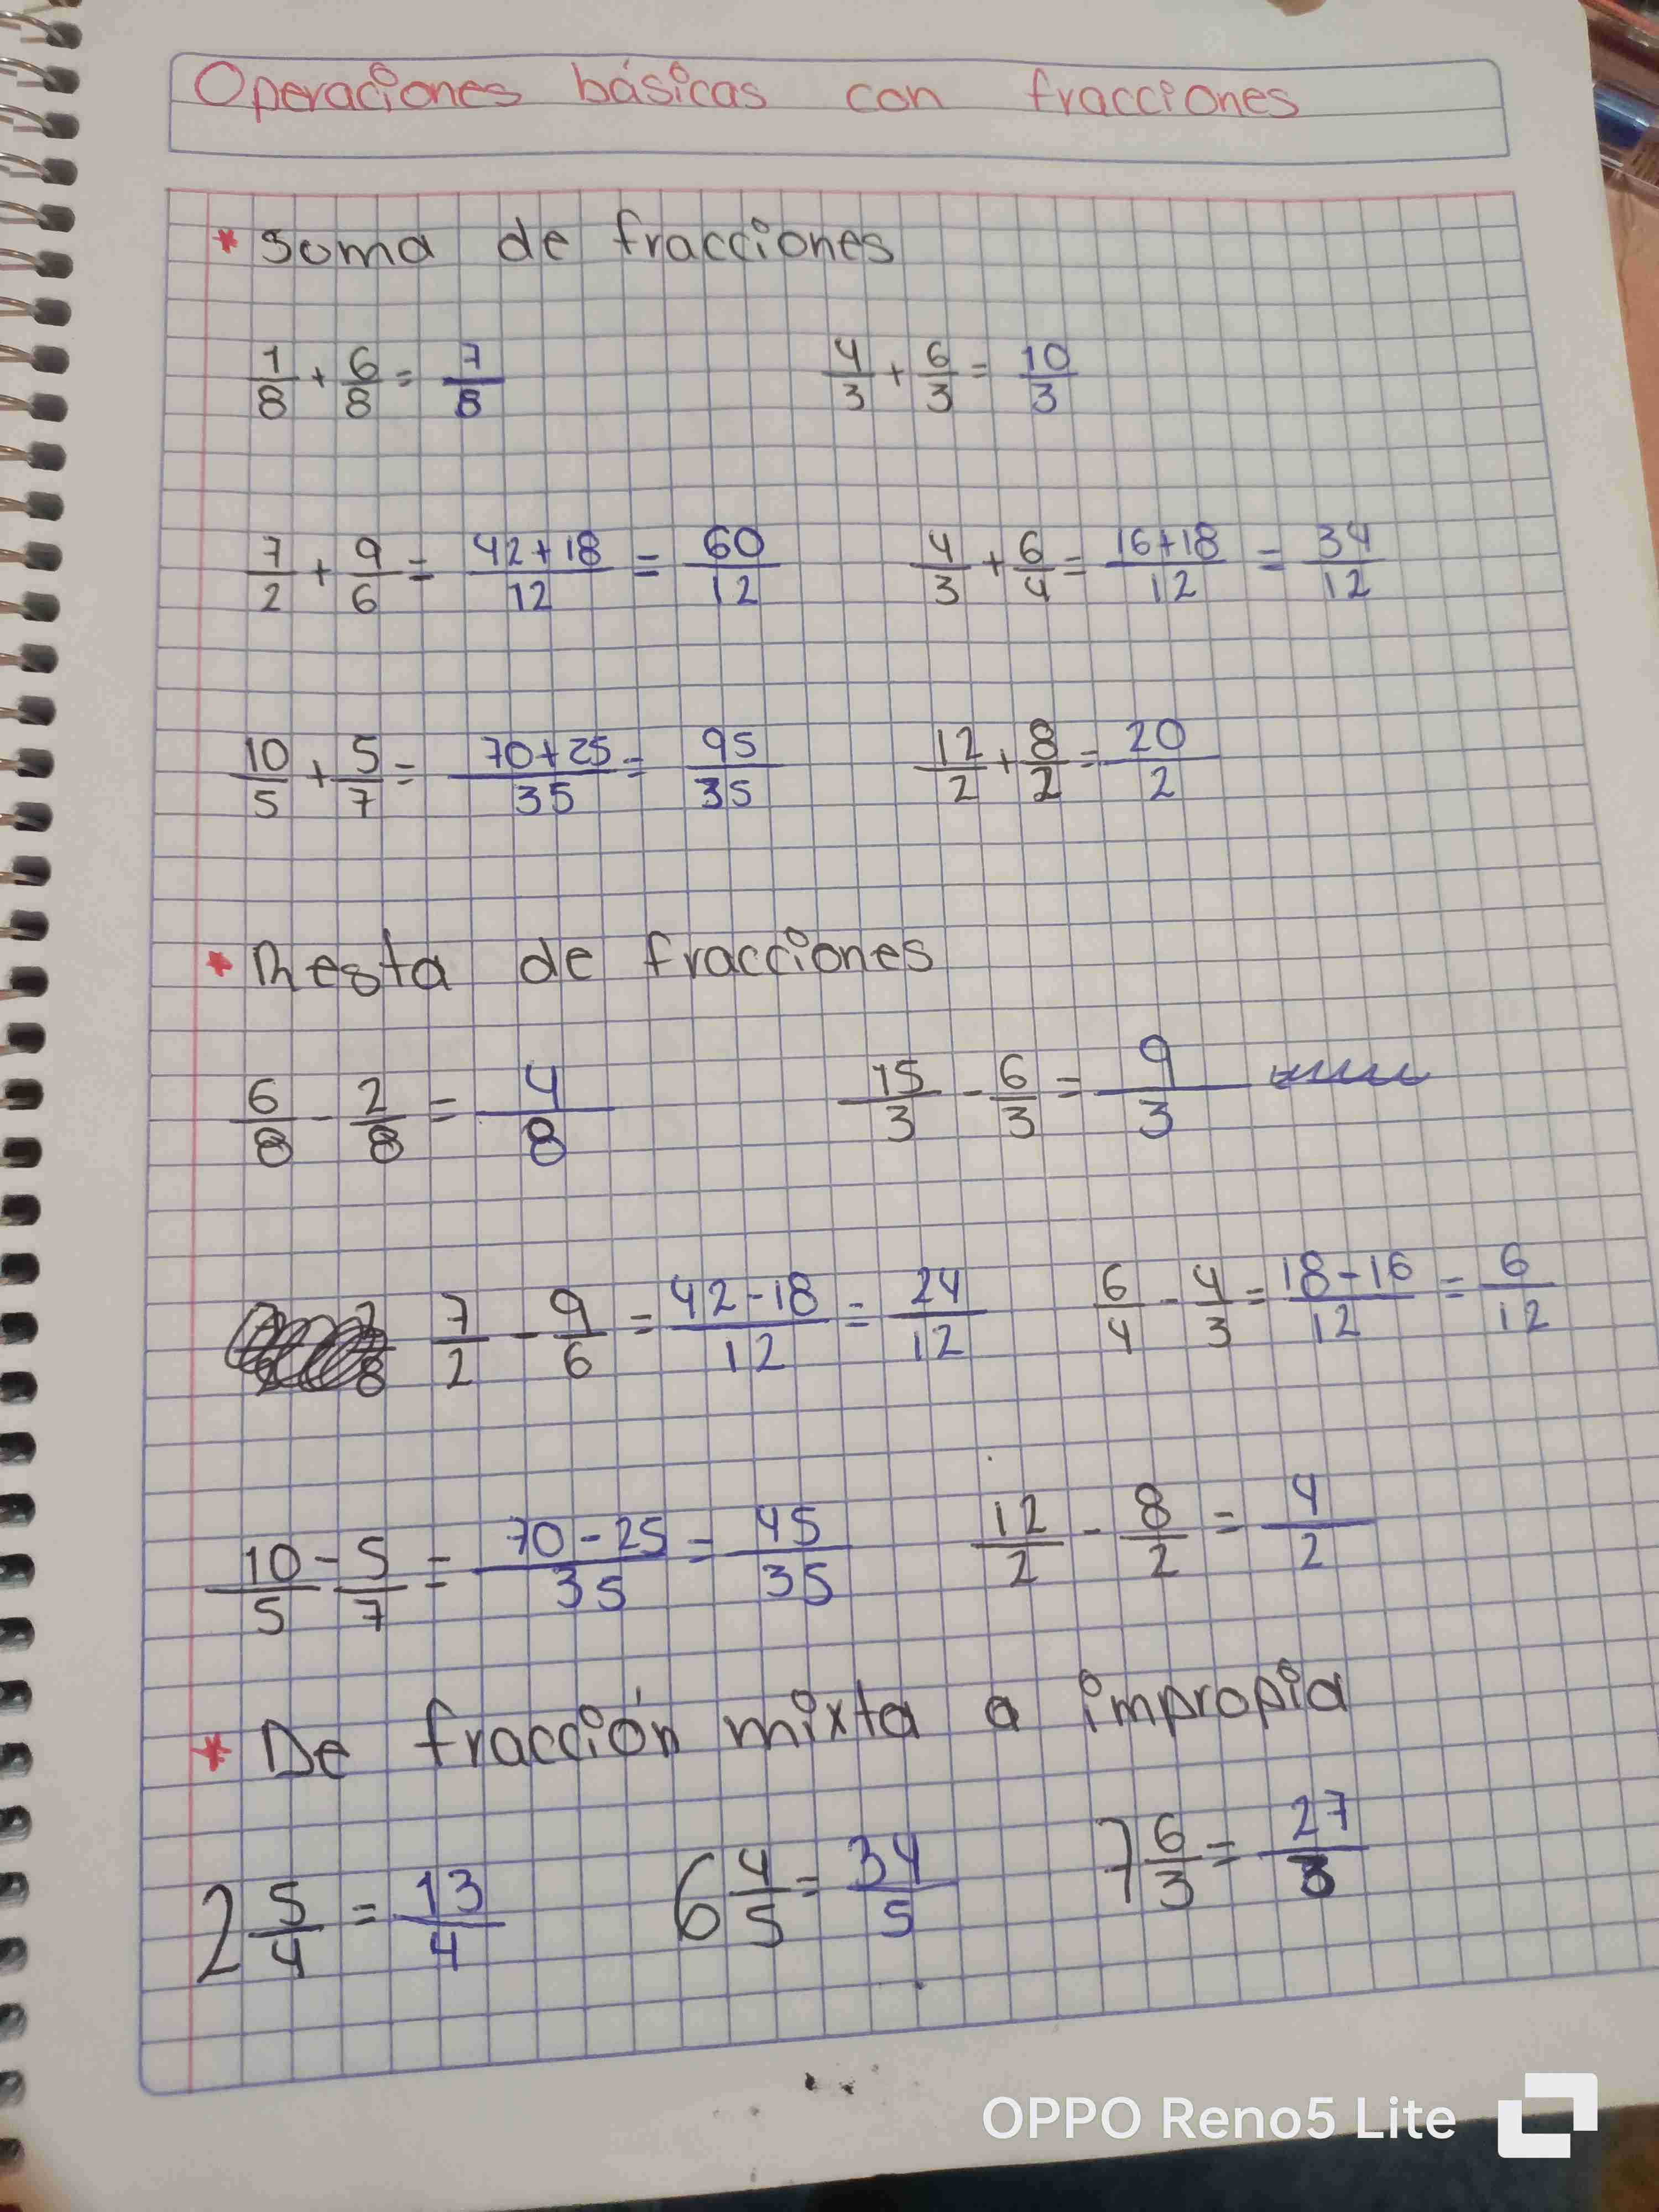 Operaciones básicas con fracciones
* Suma de fracciones
1/8 + 6/8 = 7/8    4/3 + 6/3 = 10/3
7/2 + 9/6 = 42+18/12 = 60/12    4/3 + 6/4 = 16+18/12 = 34/12
10/5 + 5/7 = 70+25/35 = 95/35    12/2 + 8/2 = 20/2
* Resta de fracciones
6/8 - 2/8 = 4/8    15/3 - 6/3 = 9/3
7/2 - 9/6 = 42-18/12 = 24/12    6/4 - 4/3 = 18-16/12 = 6/12
10/5 - 5/7 = 70-25/35 = 45/35    12/2 - 8/2 = 4/2
* De fracción mixta a impropia
2 5/4 = 13/4    6 4/5 = 34/5    7 6/3 = 27/3
OPPO Reno5 Lite